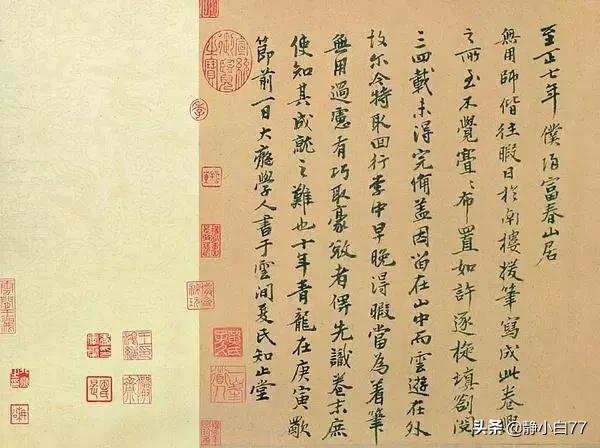 至正七年僕歸富春山居
無用師偕往暇日於南樓援筆寫成此卷興
之所至不覺亹〻布置如許逐旋填劄閱
三四載未得完備盖因留在山中而雲遊在外
故尔今特取回行李中早晚得暇當為着筆
無用過慮有巧取豪敚者俾先識卷末庶
使知其成就之難也十年青龍在庚寅歜
節前一日大癡學人書于雲間夏氏知止堂
宣統御覽之寶
头条 @静小白77